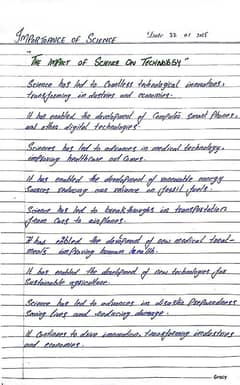 IMPORTANCE OF SCIENCE
Date 22 01 2025
"THE IMPACT OF SCIENCE ON TECHNOLOGY"
Science has led to Countless technological innovations,
transforming industries and economies.
It has enabled the development of Computers Smart Phones,
and other digital technologies.
Sciences has led to advances in medical technology,
improving healthcare out comes.
It has enabled the development of renewable energy
Sources reducing our reliance on fossil fuels.
Science has led to breakthroughs in transportation
from cars to airplanes.
It has enabled the development of new medical treat-
ments improving human health.
It has enabled the development of new technologies for
Sustainable agriculture.
Science has led to advances in disaster Preparedness
Saving lives and reducing damage.
It continues to drive innovation, transforming industries
and economies.
Gracy